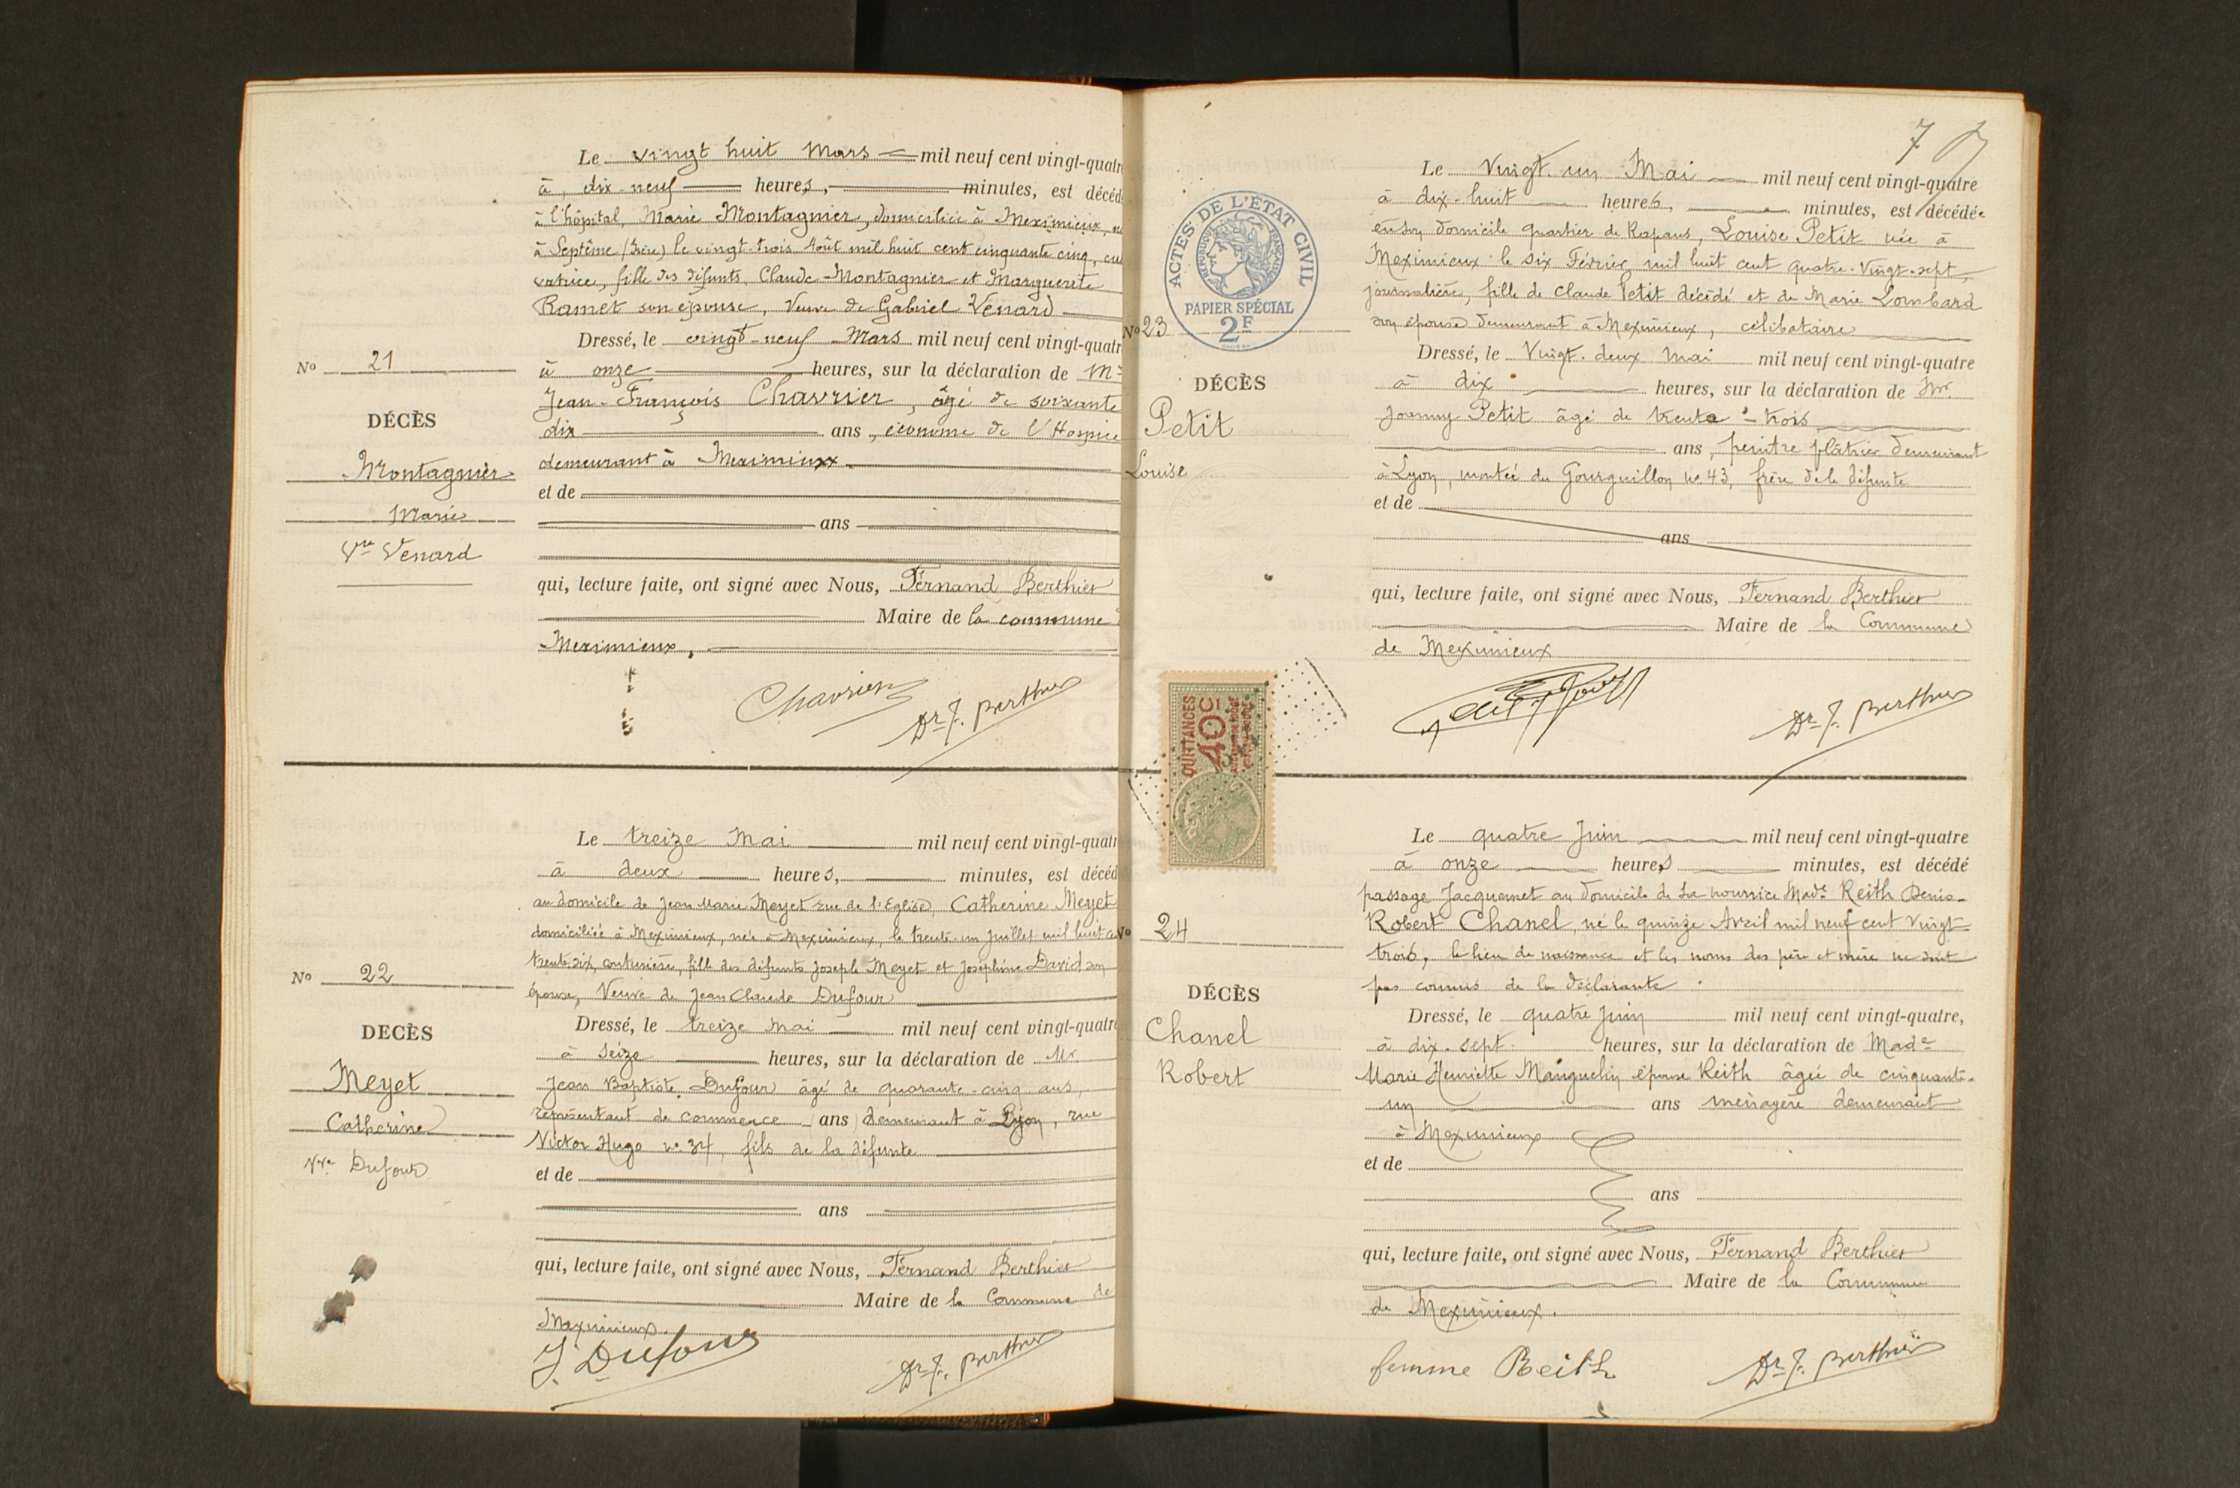 Le vingt huit Mars mil neuf cent vingt-quatr
à dix-neuf heures, minutes, est décéd
à l'hôpital, Marie Montagnier, domiciliée à Meximieux, n
à Septême (Isère) le vingt-trois Août mil huit cent cinquante cinq, cul
vatrice, fille des défunts Claude Montagnier et Marguerite
Ramet son épouse, Veuve de Gabriel Venard
Dressé, le vingt-neuf Mars mil neuf cent vingt-quatr
No 21
à onze heures, sur la déclaration de Mr
Jean-François Chavrier, âgé de soixante
DÉCÈS
dix ans, économe de l'Hospice
Montagnier
demeurant à Meximieux
et de
Marie
ans
Vve Venard
qui, lecture faite, ont signé avec Nous, Fernand Berthier
Maire de la commune
Meximieux.
Chavrier
Dr F. Berthier
Le treize Mai mil neuf cent vingt-quatr
à deux heures, minutes, est décéd
au domicile de Jean Marie Meyet rue de l'Eglise, Catherine Meyet
domiciliée à Meximieux, née à Meximieux, le trente-un Juillet mil huit c
trente-six, couturière, fille des défunts Joseph Meyet et Joséphine David son
No 22
épouse, Veuve de Jean Claude Dufour
Dressé, le treize Mai mil neuf cent vingt-quatre
DECÈS
à seize heures, sur la déclaration de Mr
Meyet
Jean Baptiste Dufour âgé de quarante-cinq ans,
représentant de commerce (ans) demeurant à Lyon, rue
Catherine
Victor Hugo no 34, fils de la défunte
Vve Dufour
et de
ans
qui, lecture faite, ont signé avec Nous, Fernand Berthier
Maire de la Commune de
Meximieux.
J. Dufour
Dr F. Berthier
7
Le Vingt-un Mai mil neuf cent vingt-quatre
à dix-huit heures, minutes, est décédée
en son domicile quartier de Rapans, Louise Petit née à
Meximieux le six Février mil huit cent quatre-Vingt-sept,
journalière, fille de Claude Petit décédé et de Marie Lombard
son épouse demeurant à Meximieux, célibataire
ACTES DE L'ÉTAT CIVIL
RÉPUBLIQUE FRANÇAISE
PAPIER SPÉCIAL
2F
No 23
Dressé, le Vingt-deux Mai mil neuf cent vingt-quatre
DÉCÈS
à dix heures, sur la déclaration de Mr
Petit
Joanny Petit âgé de trente-trois
ans, peintre plâtrier demeurant
Louise
à Lyon, montée du Gourguillon no 43, frère de la défunte
et de
ans
qui, lecture faite, ont signé avec Nous, Fernand Berthier
Maire de la Commune
de Meximieux
Dr F. Berthier
QUITTANCES
40c
Le quatre Juin mil neuf cent vingt-quatre
à onze heures minutes, est décédé
passage Jacquemet au domicile de sa nourrice Made Keith Denis-
Robert Chanel, né le quinze Avril mil neuf cent Vingt-
No 24
trois, le lieu de naissance et les noms des père et mère ne sont
pas connus de la déclarante.
DÉCÈS
Dressé, le quatre Juin mil neuf cent vingt-quatre,
Chanel
à dix-sept heures, sur la déclaration de Made
Robert
Marie Henriette Manguelin épouse Keith âgée de cinquante-
un ans ménagère demeurant
à Meximieux
et de
ans
qui, lecture faite, ont signé avec Nous, Fernand Berthier
Maire de la Commune
de Meximieux.
femme Keith
Dr F. Berthier